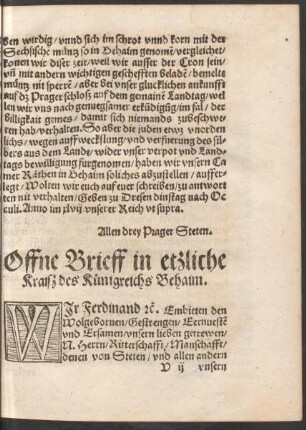 ben wirdig/ vnnd sich im schrot vnnd korn mit der
Sechsische müntz so in Behaim genomē vergleichet/
konen wir diser zeit/ weil wir ausser der Cron sein/
vñ mit andern wichtigen geschefften beladē/ bemelte
müntz nit sperrē/ aber bei vnser glücklichen ankunfft
auf dz Prager schloß auf dem genainē Landtag/ wel
len wir vns nach genuegsamer erkündigūg/ im fal/ der
billigkait gemes/ damit sich niemands zubeschwe
ren hab/ verhalten. So aber die juden etwz vnorden
lichs/ wegen auffwechslung/ vnd verfierung des sil
bers aus dem Lande/ wider vnser verpot vnd Land-
tags bewilligung fürgenomen/ haben wir vnsern Ca
mer Räthen in Behaim soliches abzustellen/ aufferl-
legt/ Wolten wir euch auf euer schreiben/ zu antwort
ten nit verhalten/ Geben zu Dresen dinstag nach Oc
culi. Anno im xlvij vnserer Reich vt supra.
Allen drey Prager Steten.
Offne Brieff in etzliche
Kraiß des Künigreichs Behaim.
WIr Ferdinand ꝛc. Embieten den
Wolgebornen/ Gestrengen/ Eernuestē
vnd Ersamen/ vnsern lieben getrewen/
N. Herrn/ Ritterschafft/ Manschafft/
denen von Steten/ vnd allen andern
V ij vnsern